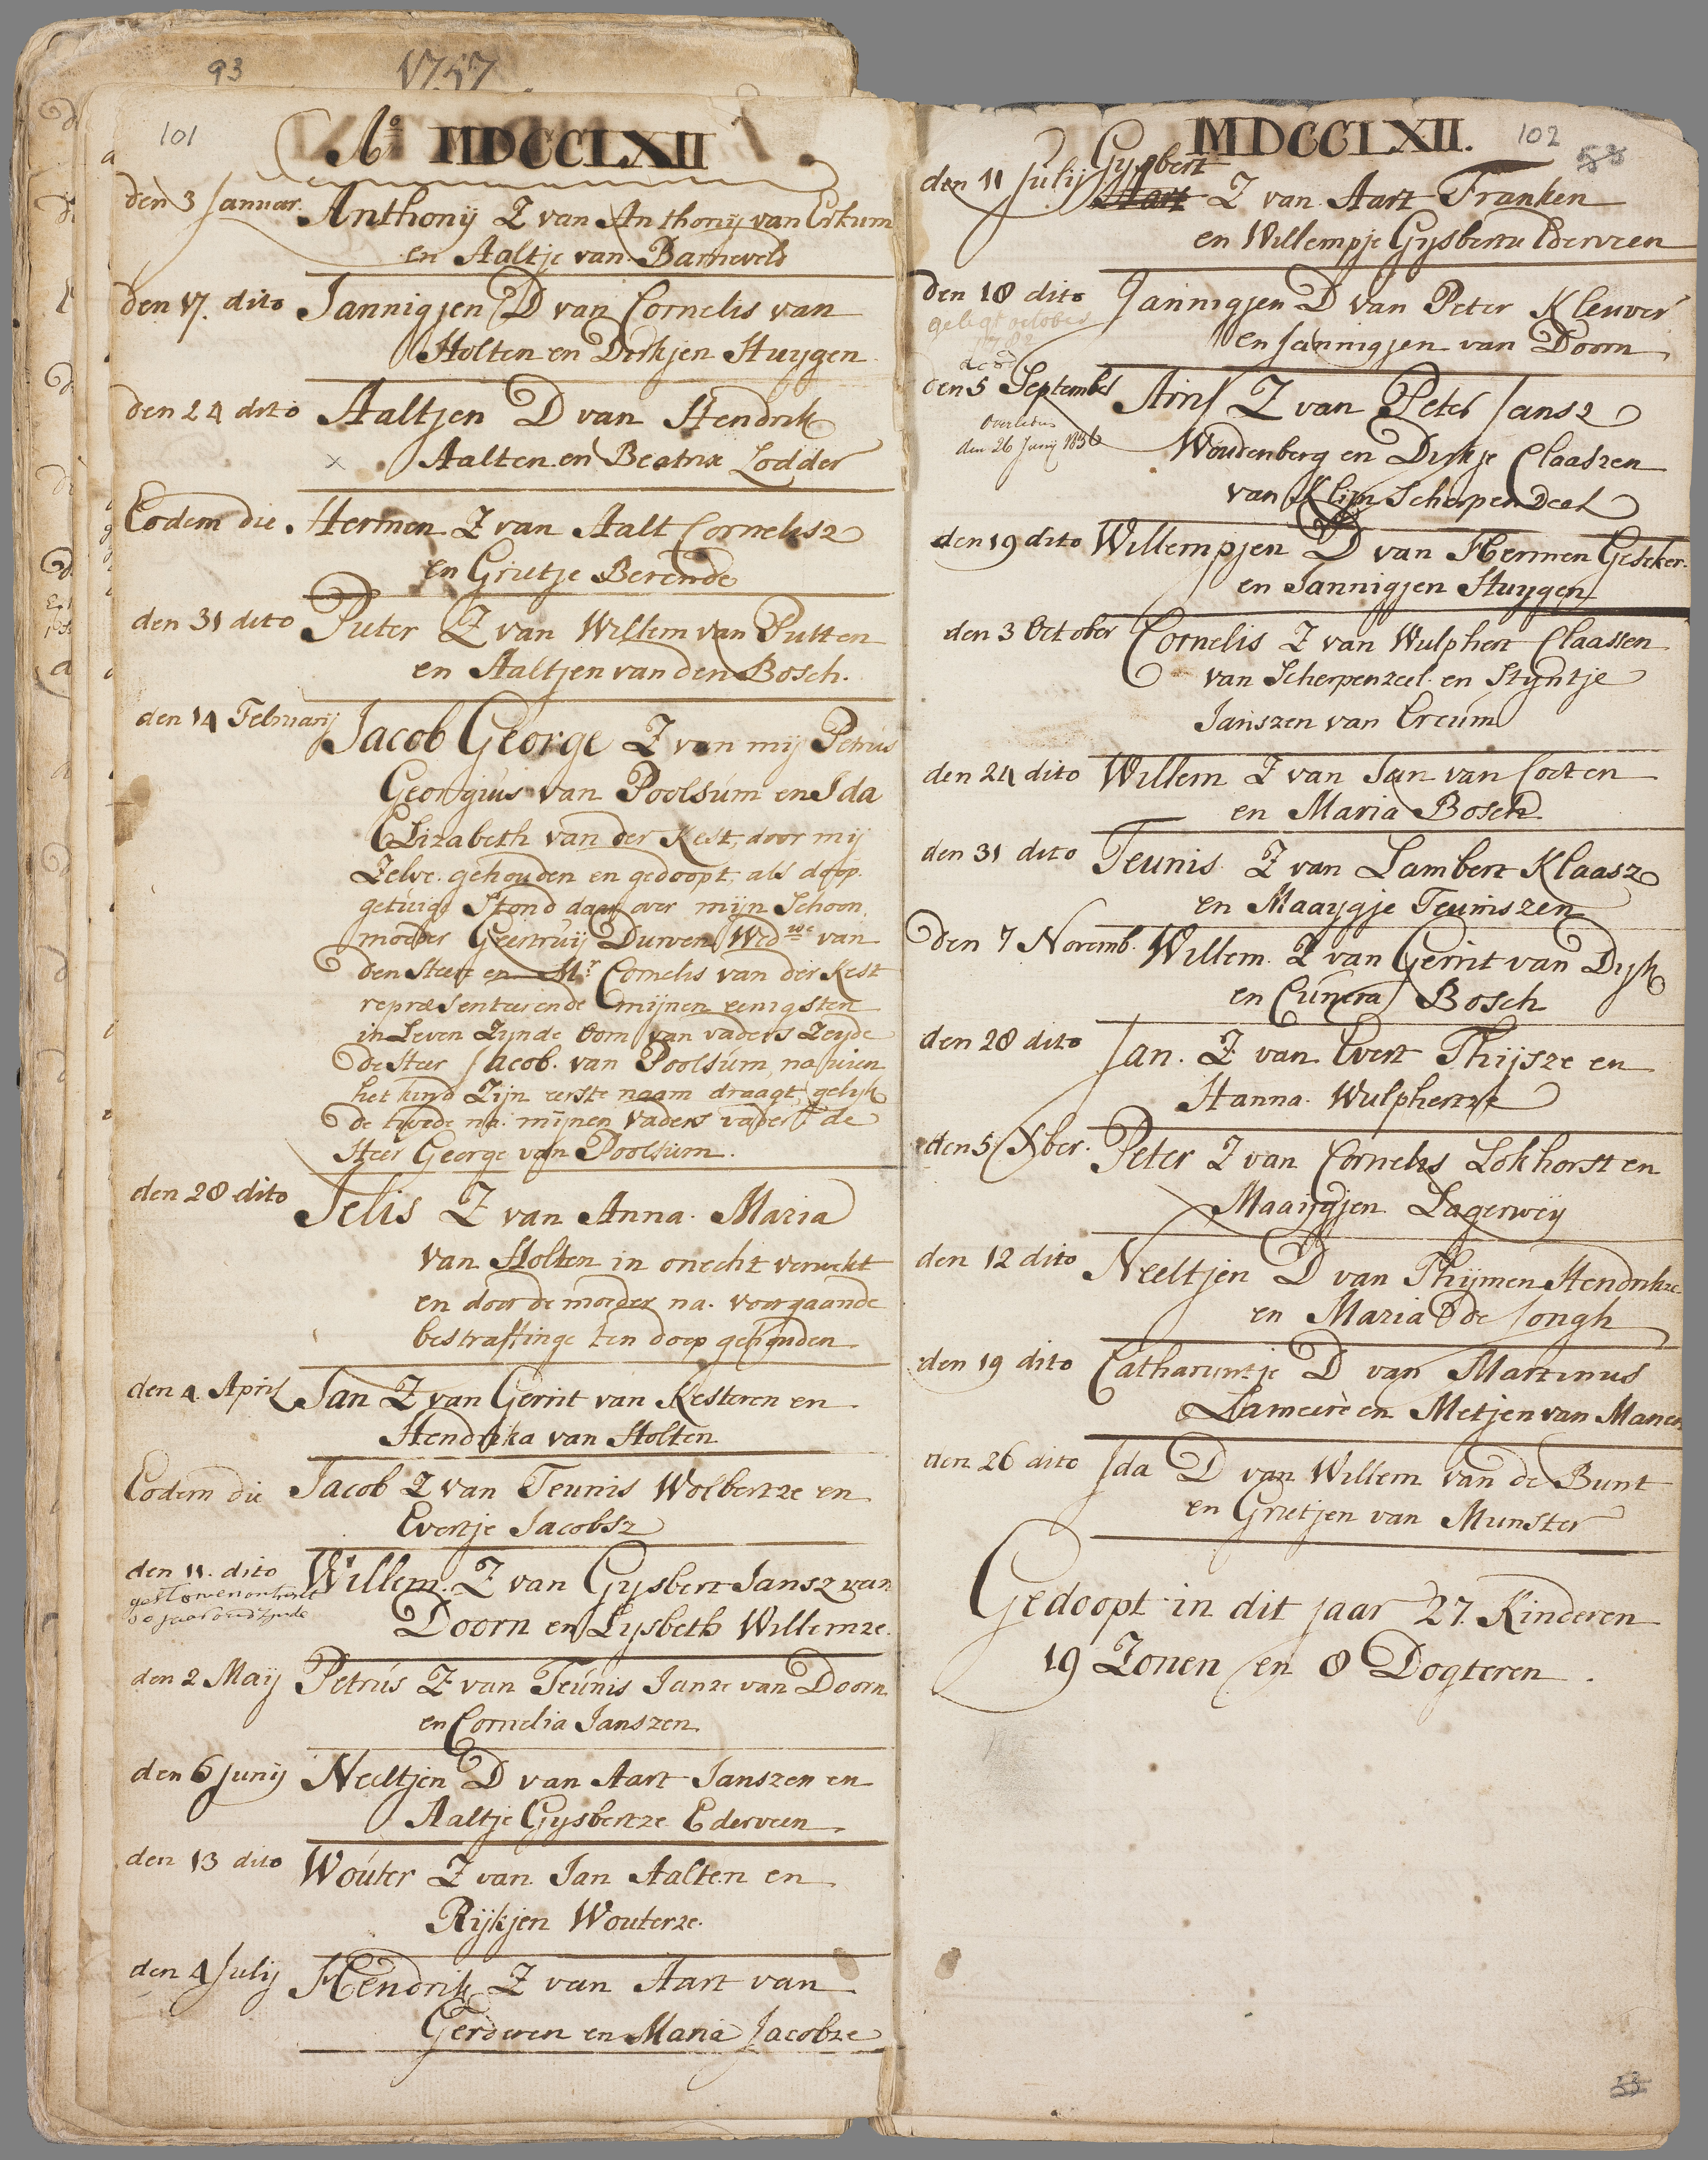 93
1757
101
Ao MDCCLXII
den 3 Januar. Anthonÿ Z van Anthonÿ van Erkum
en Aaltje van Barneveld
den 17. dito Jannigjen D van Cornelis van
Holten en Dirkjen Huygen
den 24 dito Aaltjen D van Hendrik
x Aalten en Beatrix Lodder
Eodem die. Hermen Z van Aalt Cornelisz
en Grietje Berende
den 31 dito Pieter Z van Willem van Putten
en Aaltjen van den Bosch.
den 14 Februarij Jacob George Z van mij Petrus
Georgius van Poolsum en Ida
Elizabeth van der Kest, door mij
Zelve gehouden en gedoopt, als doop
getuige Stond daar over mijn Schoon
moeder Geertruij Durven Wed.we van
den Heere en Mr Cornelis van der Kest
repraesenteerende mijnen eenigsten
in Leven Zijnde Oom van vaders Zeyde
de Heer Jacob. van Poolsum, na wien
het kind Zijn eerste naam draagt, gelijk
de twede na mijnen vaders vader de
Heer George van Poolsum.
den 28 dito Jelis Z van Anna Maria
van Holten in onecht verwekt
en door de moeder na voorgaande
bestraffinge ten doop gehouden
den 4. April Jan Z van Gerrit van Kesteren en
Hendrika van Holten
Eodem die Jacob Z van Teunis Wolbertze en
Evertje Jacobsz
den 11. dito Willem. Z van Gysbert Jansz van
gestorven omtrent
80 jaar oud zynde
Doorn en Lysbeth Willemze.
den 2 Maij Petrus Z van Teunis Janze van Doorn
en Cornelia Janszen
den 6 Junij Neeltjen D van Aart Janszen en
Aaltje Gysbertze Ederveen
den 13 dito Wouter Z van Jan Aalten en
Rijkjen Wouterze.
den 4 Julij Hendrik Z van Aart van
Gerderen en Maria Jacobze
MDCCLXII.
102
53
den 11 Julij Gysbert
Aart Z van Aart Franken
en Willempje Gysbertze Ederveen
den 18 dito Jannigjen D van Peter Kleuver
gelegt october
en Jannigjen van Doorn
den 5 September Arris Z van Peter Jansz
overleden
den 26 Junij 1836
Woudenberg en Dirkje Claaszen
van Klijn Scherpenzeel
den 19 dito Willempjen D van Hermen Geseker
en Jannigjen Huygen
den 3 October Cornelis Z van Wulphert Claassen
van Scherpenzeel en Styntje
Janszen van Ercum
den 24 dito Willem Z van Jan van Coeten
en Maria Bosch.
den 31 dito Teunis Z van Lambert Klaasz
en Maaygje Teuniszen
den 7 Novemb. Willem. Z van Gerrit van Dyk
en Cunera Bosch
den 28 dito Jan. Z van Evert Thijsze en
Hanna Wulphertze
den 5 Xber. Peter Z van Cornelis Lokhorst en
Maaijgjen Lagerweij
den 12 dito Neeltjen D van Thijmen Hendrikze
en Maria de Jongh
den 19 dito Catharyntje D van Martinus
Lameere en Metjen van Manen
den 26 dito Ida D van Willem van de Bunt
en Grietjen van Munster
Gedoopt in dit jaar 27. Kinderen
19 Zonen en 8 Dogteren.
53